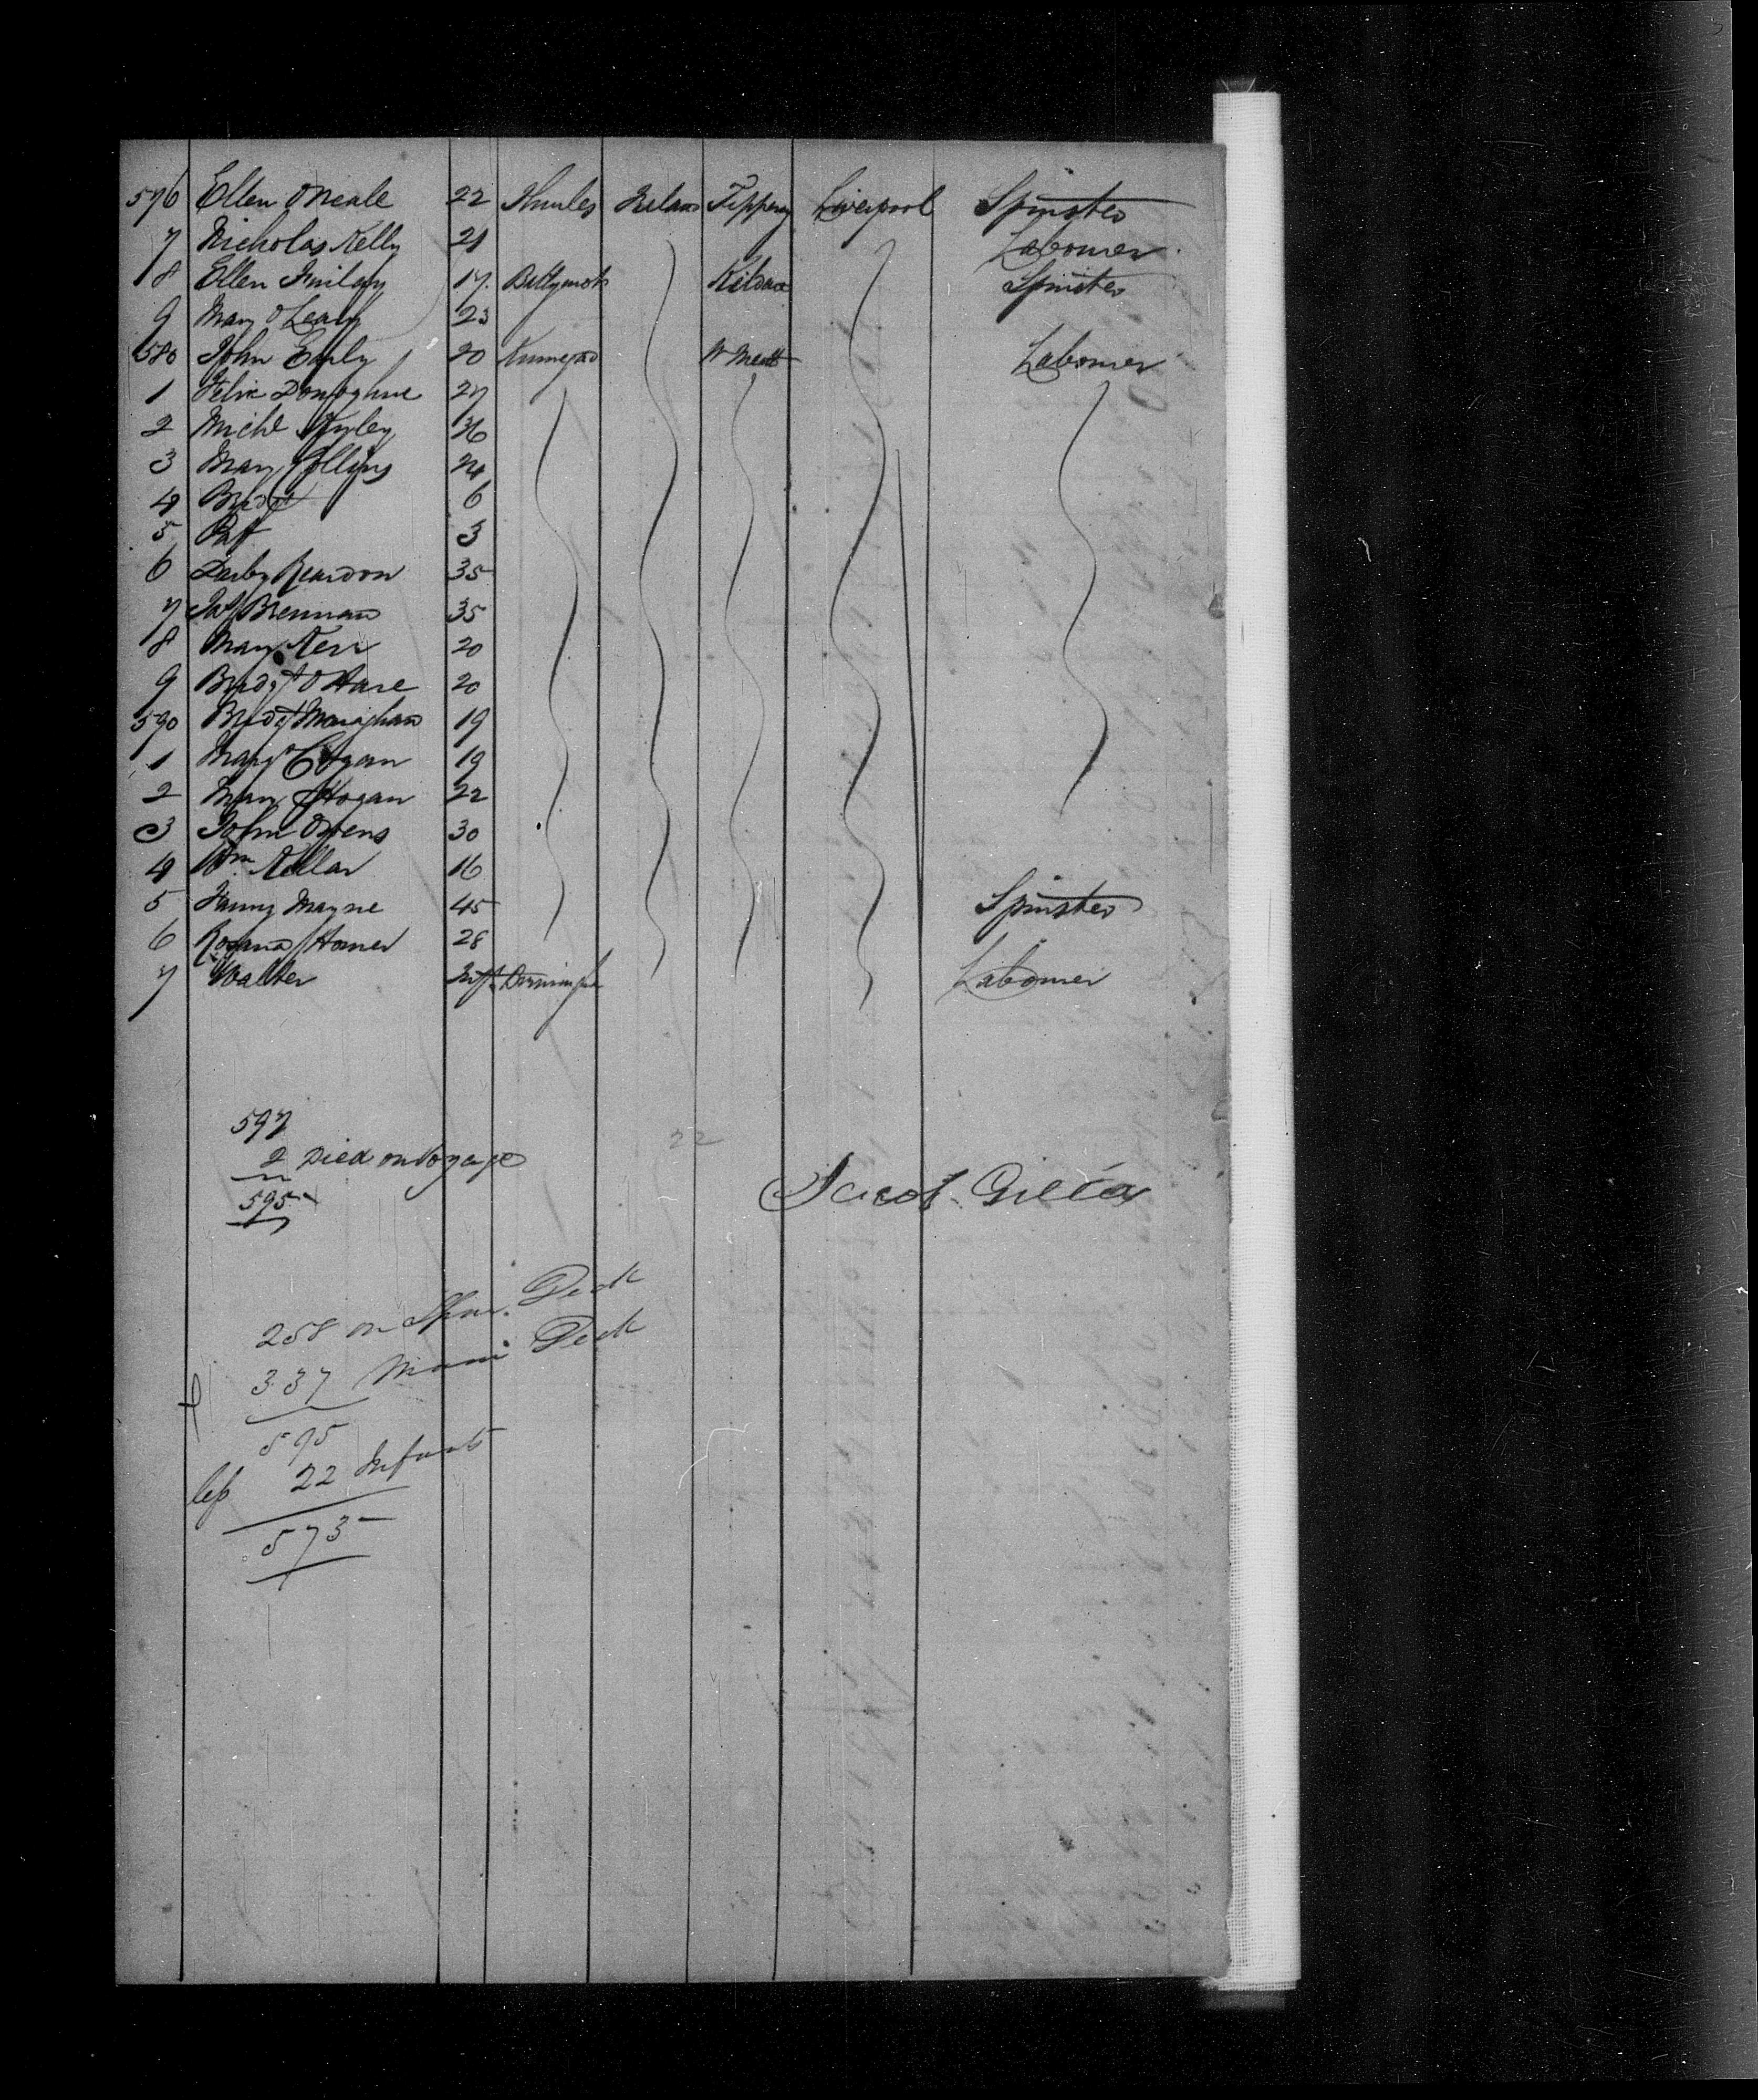 576 Ellen O Neale 22 Thurles Ireland Tippery Liverpool Spinster
7 Nicholas Kelly 21 Labourer
8 Ellen 17 Kildare Spinster
9 Mary O Leary 23
580 John Early 20 Kinnegad W Meath Labourer
1 Felix Donoghue 27
2 Michl 36
3 Mary Collins 24
4 Bridgt 6
5 Patt 3
6 Darby Reardon 35
7 Jas Brennan 35
8 Mary Kerr 20
9 Bridgt O Hare 20
590 Bridgt Monaghan 19
1 Margt Cogan 19
2 Mary Hogan 22
3 John Owens 30
4 Wm Kellar 16
5 Fanny Mayne 45 Spinster
6 Homer 28
7 Walter Inft Labourer
597
2 Died on Voyage
595
22
Jacob
258 on Spar Deck
337 Main Deck
595
less 22 Infants
573